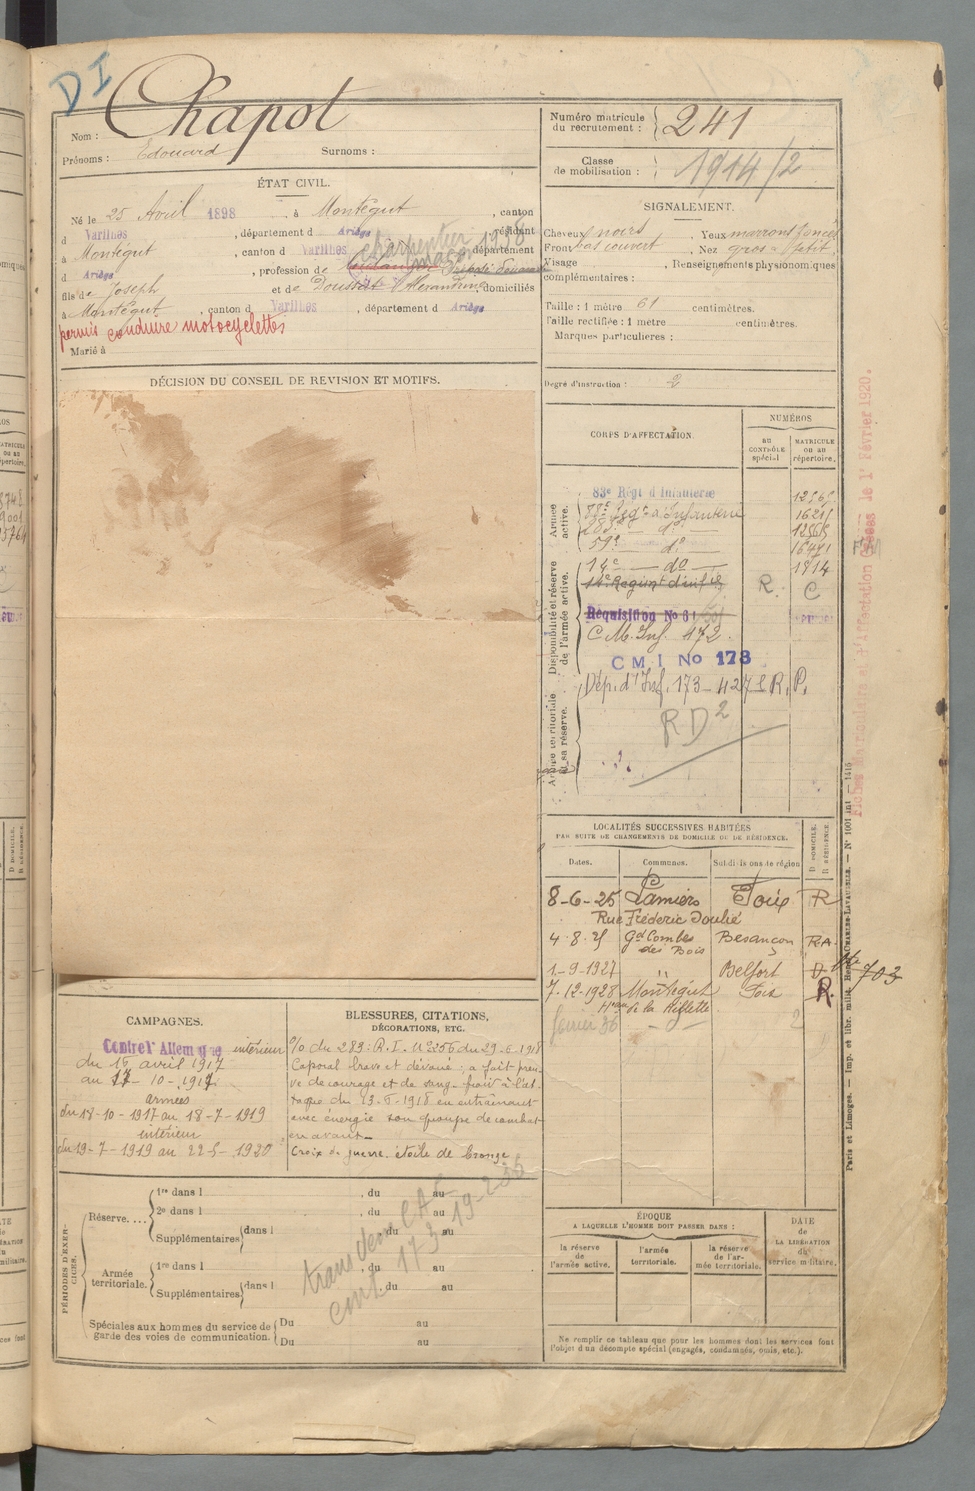 DI
Nom : Chapot
Prénoms : Edouard Surnoms :
Numéro matricule du recrutement : 241
Classe de mobilisation : 1914/2
ÉTAT CIVIL.
Né le 25 Avril 1898, à Montégut, canton
d Varilhes, département d Ariège, résidant
à Montégut, canton d Varilhes, département
charpentier 1938
d Ariège, profession de
fils de Joseph et de Doustat Alexandrine, domiciliés
à Montégut, canton d Varilhes, département d Ariège
permis conduire motocyclettes
Marié à
SIGNALEMENT.
Cheveux noirs, Yeux marrons foncés
Front bas couvert, Nez gros petit
Visage, Renseignements physionomiques
complémentaires :
Taille : 1 mètre 61 centimètres.
Taille rectifiée : 1 mètre centimètres.
Marques particulières :
Degré d'instruction : 2
DÉCISION DU CONSEIL DE REVISION ET MOTIFS.
CORPS D'AFFECTATION.
NUMÉROS
AU CONTRÔLE spécial
MATRICULE ou au répertoire.
Armée active.
83e Régt d'Infanterie
88e Regt d'Infanterie
283e — do
59e — do
14e — do — 1814
Disponibilité et réserve de l'armée active.
14e Régiment d'inf R. C
Réquisition No 61
C. M. Inf. 472.
C M I No 173
Armée territoriale et sa réserve.
Dép. d'Inf. 173 - 427 R. P.
RD2
Fiches Matriculaire et d'Affectation Créées le 1r Février 1920.
LOCALITÉS SUCCESSIVES HABITÉES
PAR SUITE DE CHANGEMENTS DE DOMICILE OU DE RÉSIDENCE.
D DOMICILE. R RÉSIDENCE.
Dates. Communes. Subdivisions de région
8-6-25 Pamiers Foix R
Rue Fréderic Soulié
4.8.25 Gd Combe des Bois Besançon RA
1-9-1927 " Belfort D
703
7.12-1928 Montégut Foix R.
Hau de la Rillette
février 36
CAMPAGNES.
Contre l'Allemagne intérieur
du 15 avril 1917
au 17-10-1917.
armées
du 18-10-1917 au 18-7-1919
intérieur
du 19-7-1919 au 22-5-1920
BLESSURES, CITATIONS, DÉCORATIONS, ETC.
o/o du 283e R.I. No 256 du 29.6.1918
Caporal brave et dévoué ; a fait preu-
ve de courage et de sang-froid à l'at-
taque du 13-6-1918 en entraînant
avec énergie son groupe de combat
en avant.
Croix de guerre étoile de bronze
PÉRIODES D'EXERCICES.
Réserve....
1re dans l , du au
2e dans l , du au
Supplémentaires dans l , du au
Armée territoriale.
1re dans l , du au
Supplémentaires dans l , du au
Spéciales aux hommes du service de garde des voies de communication.
Du au
Du au
ÉPOQUE
A LAQUELLE L'HOMME DOIT PASSER DANS :
la réserve de l'armée active.
l'armée territoriale.
la réserve de l'armée territoriale.
DATE de LA LIBÉRATION du service militaire.
Ne remplir ce tableau que pour les hommes dont les services font
l'objet d'un décompte spécial (engagés, condamnés, omis, etc.).
Paris et Limoges. — Imp. et libr. milit. Henri CHARLES-LAVAUZELLE. — No 1001 int — 1415